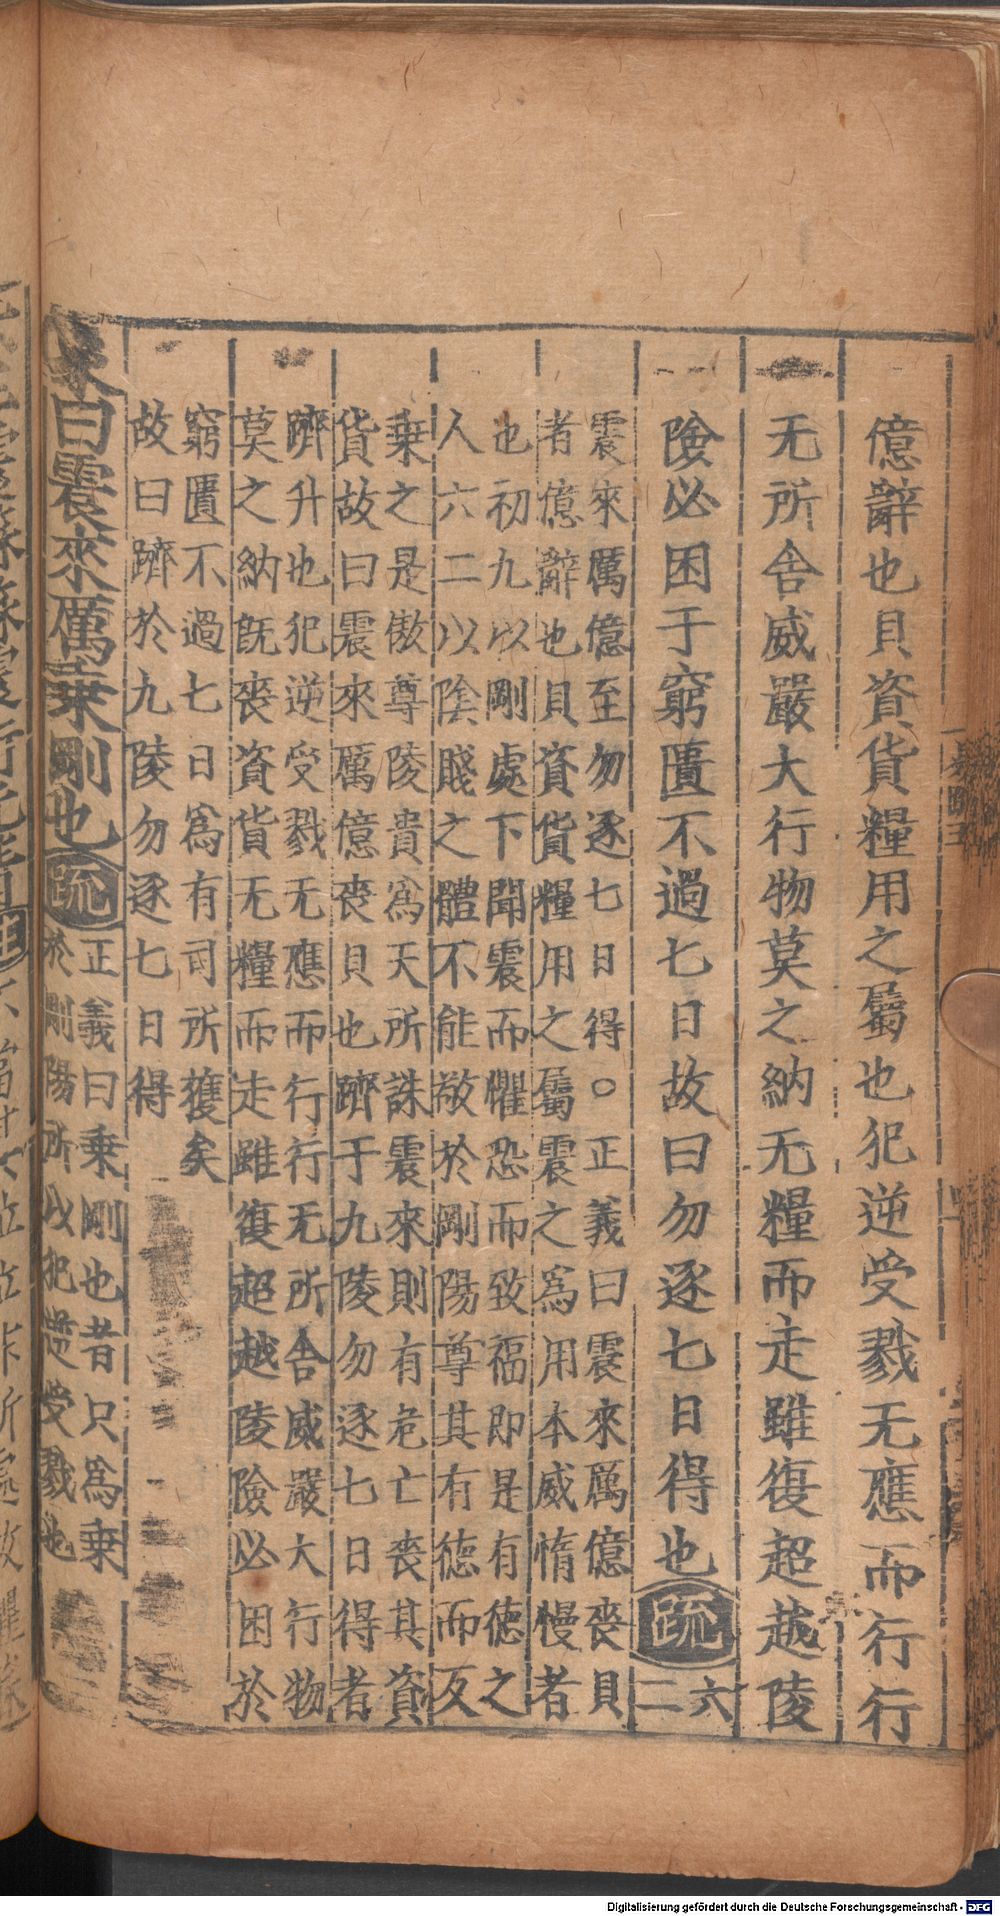 億辭也貝資貨糧用之屬也犯逆受戮无應而行行
无所舎威嚴大行物莫之納无糧而走雖復超越陵
險必困于窮匱不過七日故曰勿逐七日得也疏六二
震來厲億至勿逐七日得○正義曰震來厲億喪貝
者億辭也貝資貨糧用之屬震之為用本威惰慢者
也初九以剛處下聞震而懼恐而致福即是有德之
人六二以陰賤之體不能敬於剛陽尊其有德而反
乗之是傲尊陵貴為天所誅震來則有危亡喪其資
貨故曰震來厲億喪貝也躋于九陵勿逐七日得者
躋升也犯逆受戮无應而行行无所舍威嚴大行物
莫之納旣喪資貨无糧而走雖復超越陵險必困於
窮匱不過七日為有司所獲矣
故曰躋於九陵勿逐七日得
象曰震來厲乗剛也疏正義曰乗剛也者只為乗
於剛陽所以犯逆受戮也
Digitalisierung gefördert durch die Deutsche Forschungsgemeinschaft - DFG